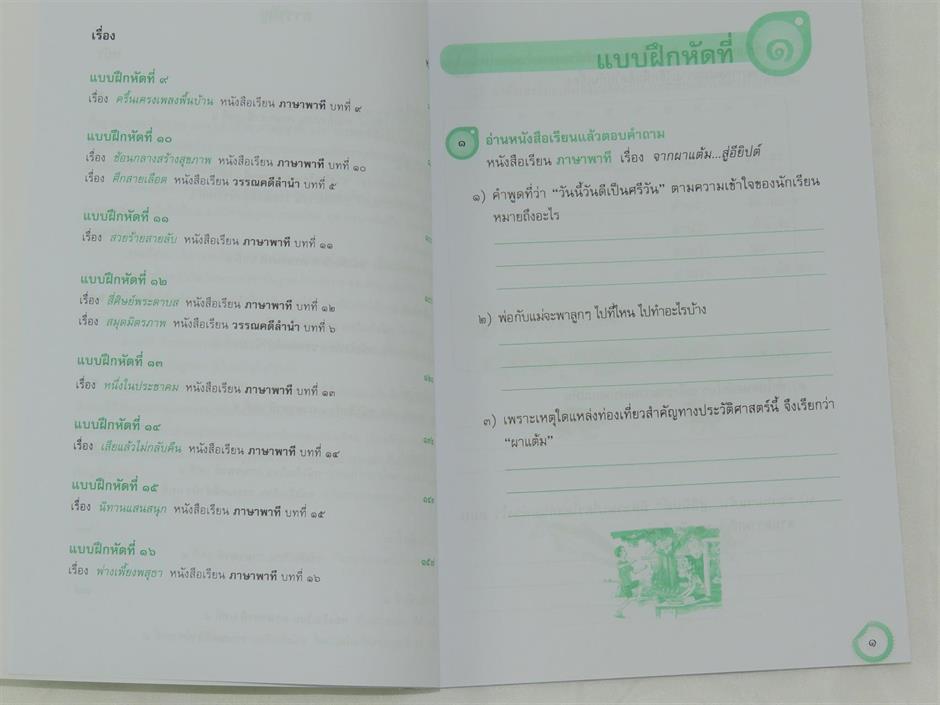 เรื่อง
แบบฝึกหัดที่ ๙
เรื่อง ครื้นเครงเพลงพื้นบ้าน หนังสือเรียน ภาษาพาที บทที่ ๙
แบบฝึกหัดที่ ๑๐
เรื่อง ช้อนกลางสร้างสุขภาพ หนังสือเรียน ภาษาพาที บทที่ ๑๐
เรื่อง ศึกสายเลือด หนังสือเรียน วรรณคดีลำนำ บทที่ ๕
แบบฝึกหัดที่ ๑๑
เรื่อง สวยร้ายสวยลับ หนังสือเรียน ภาษาพาที บทที่ ๑๑
แบบฝึกหัดที่ ๑๒
เรื่อง สี่ศิษย์พระดาบส หนังสือเรียน ภาษาพาที บทที่ ๑๒
เรื่อง สมุดมิตรภาพ หนังสือเรียน วรรณคดีลำนำ บทที่ ๖
แบบฝึกหัดที่ ๑๓
เรื่อง หนึ่งในประชาคม หนังสือเรียน ภาษาพาที บทที่ ๑๓
แบบฝึกหัดที่ ๑๔
เรื่อง เสียแล้วไม่กลับคืน หนังสือเรียน ภาษาพาที บทที่ ๑๔
แบบฝึกหัดที่ ๑๕
เรื่อง นิทานแสนสนุก หนังสือเรียน ภาษาพาที บทที่ ๑๕
แบบฝึกหัดที่ ๑๖
เรื่อง พ่างเพี้ยงพสุธา หนังสือเรียน ภาษาพาที บทที่ ๑๖
แบบฝึกหัดที่ ๑
๑ อ่านหนังสือเรียนแล้วตอบคำถาม
หนังสือเรียน ภาษาพาที เรื่อง จากผาแต้ม...สู่อียิปต์
๑) คำพูดที่ว่า “วันนี้วันดีเป็นศรีวัน” ตามความเข้าใจของนักเรียน
หมายถึงอะไร
๒) พ่อกับแม่จะพาลูกๆ ไปที่ไหน ไปทำอะไรบ้าง
๓) เพราะเหตุใดแหล่งท่องเที่ยวสำคัญทางประวัติศาสตร์นี้ จึงเรียกว่า
“ผาแต้ม”
๑